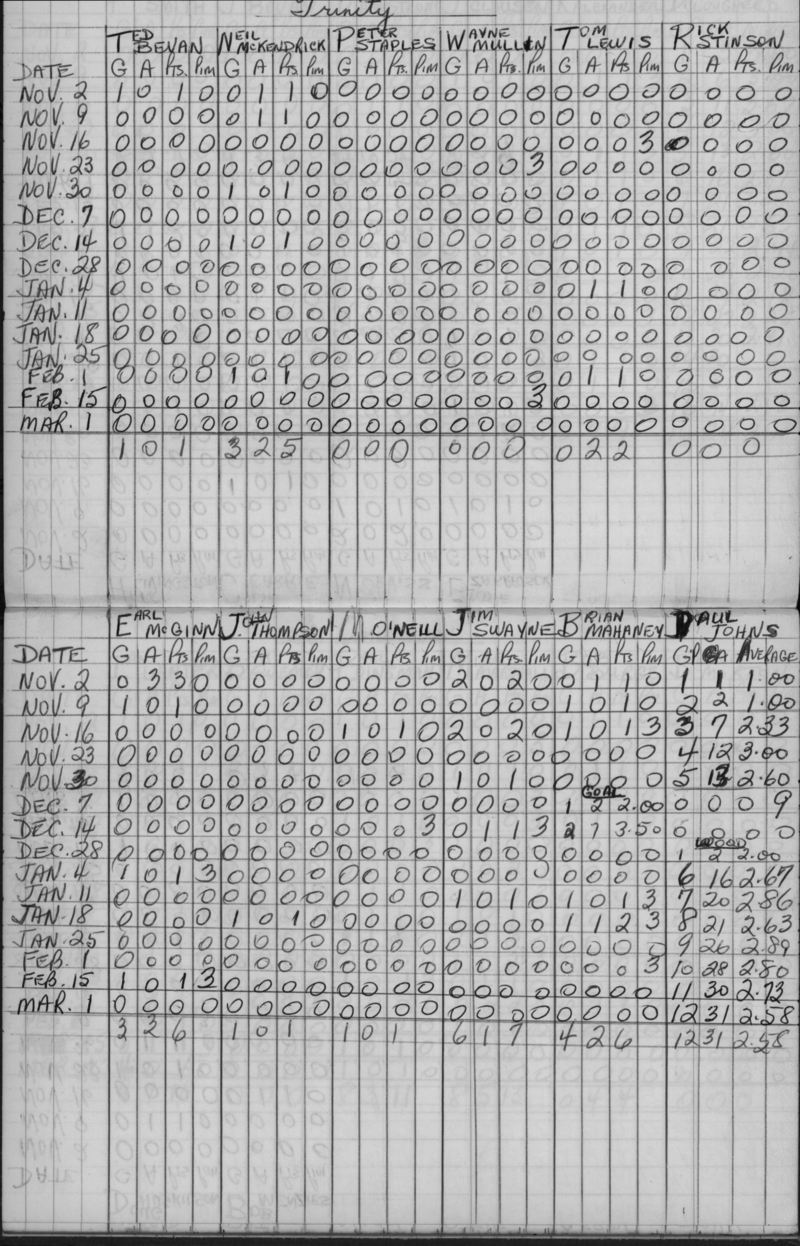 Trinity
TED BEVAN NEIL McKENDRICK PETER STAPLES WAYNE MULLIN TOM LEWIS RICK STINSON
DATE G A Pts. Pim G A Pts Pim G A Pts. Pim G A Pts. Pim G A Pts Pim G A Pts. Pim
NOV. 2 1 0 1 0 0 1 1 0 0 0 0 0 0 0 0 0 0 0 0 0 0 0 0 0
NOV. 9 0 0 0 0 0 1 1 0 0 0 0 0 0 0 0 0 0 0 0 0 0 0 0 0
NOV. 16 0 0 0 0 0 0 0 0 0 0 0 0 0 0 0 0 0 0 0 3 0 0 0 0
NOV. 23 0 0 0 0 0 0 0 0 0 0 0 0 0 0 0 3 0 0 0 0 0 0 0 0
NOV. 30 0 0 0 0 1 0 1 0 0 0 0 0 0 0 0 0 0 0 0 0 0 0 0 0
DEC. 7 0 0 0 0 0 0 0 0 0 0 0 0 0 0 0 0 0 0 0 0 0 0 0 0
DEC. 14 0 0 0 0 1 0 1 0 0 0 0 0 0 0 0 0 0 0 0 0 0 0 0 0
DEC. 28 0 0 0 0 0 0 0 0 0 0 0 0 0 0 0 0 0 0 0 0 0 0 0 0
JAN. 4 0 0 0 0 0 0 0 0 0 0 0 0 0 0 0 0 0 1 1 0 0 0 0 0
JAN. 11 0 0 0 0 0 0 0 0 0 0 0 0 0 0 0 0 0 0 0 0 0 0 0 0
JAN. 18 0 0 0 0 0 0 0 0 0 0 0 0 0 0 0 0 0 0 0 0 0 0 0 0
JAN. 25 0 0 0 0 0 0 0 0 0 0 0 0 0 0 0 0 0 0 0 0 0 0 0 0
FEB. 1 0 0 0 0 1 0 1 0 0 0 0 0 0 0 0 0 0 1 1 0 0 0 0 0
FEB. 15 0 0 0 0 0 0 0 0 0 0 0 0 0 0 0 3 0 0 0 0 0 0 0 0
MAR. 1 0 0 0 0 0 0 0 0 0 0 0 0 0 0 0 0 0 0 0 0 0 0 0 0
1 0 1 3 2 5 0 0 0 0 0 0 0 2 2 0 0 0
EARL McGINN JOHN THOMPSON O'NEILL JIM SWAYNE BRIAN MAHANEY PAUL JOHNS
DATE G A Pts Pim G A Pts Pim G A Pts Pim G A Pts Pim G A Pts Pim GP GA AVERAGE
NOV. 2 0 3 3 0 0 0 0 0 0 0 0 0 2 0 2 0 0 1 1 0 1 1 1.00
NOV. 9 1 0 1 0 0 0 0 0 0 0 0 0 0 0 0 0 1 0 1 0 2 2 1.00
NOV. 16 0 0 0 0 0 0 0 0 1 0 1 0 2 0 2 0 1 0 1 3 3 7 2.33
NOV. 23 0 0 0 0 0 0 0 0 0 0 0 0 0 0 0 0 0 0 0 0 4 12 3.00
NOV. 30 0 0 0 0 0 0 0 0 0 0 0 0 1 0 1 0 0 0 0 0 5 13 2.60
GOAL
DEC. 7 0 0 0 0 0 0 0 0 0 0 0 0 0 0 0 0 1 2 2.00 0 0 0 9
DEC. 14 0 0 0 0 0 0 0 0 0 0 0 3 0 1 1 3 2 7 3.50 0 0 0 0
WOOD
DEC. 28 0 0 0 0 0 0 0 0 0 0 0 0 0 0 0 0 0 0 0 0 1 2 2.00
JAN. 4 1 0 1 3 0 0 0 0 0 0 0 0 0 0 0 0 0 0 0 0 6 16 2.67
JAN. 11 0 0 0 0 0 0 0 0 0 0 0 0 1 0 1 0 1 0 1 3 7 20 2.86
JAN. 18 0 0 0 0 1 0 1 0 0 0 0 0 0 0 0 0 1 1 2 3 8 21 2.63
JAN. 25 0 0 0 0 0 0 0 0 0 0 0 0 0 0 0 0 0 0 0 0 9 26 2.89
FEB. 1 0 0 0 0 0 0 0 0 0 0 0 0 0 0 0 0 0 0 0 3 10 28 2.80
FEB. 15 1 0 1 3 0 0 0 0 0 0 0 0 0 0 0 0 0 0 0 0 11 30 2.73
MAR. 1 0 0 0 0 0 0 0 0 0 0 0 0 0 0 0 0 0 0 0 0 12 31 2.58
3 3 6 1 0 1 1 0 1 6 1 7 4 2 6 12 31 2.58